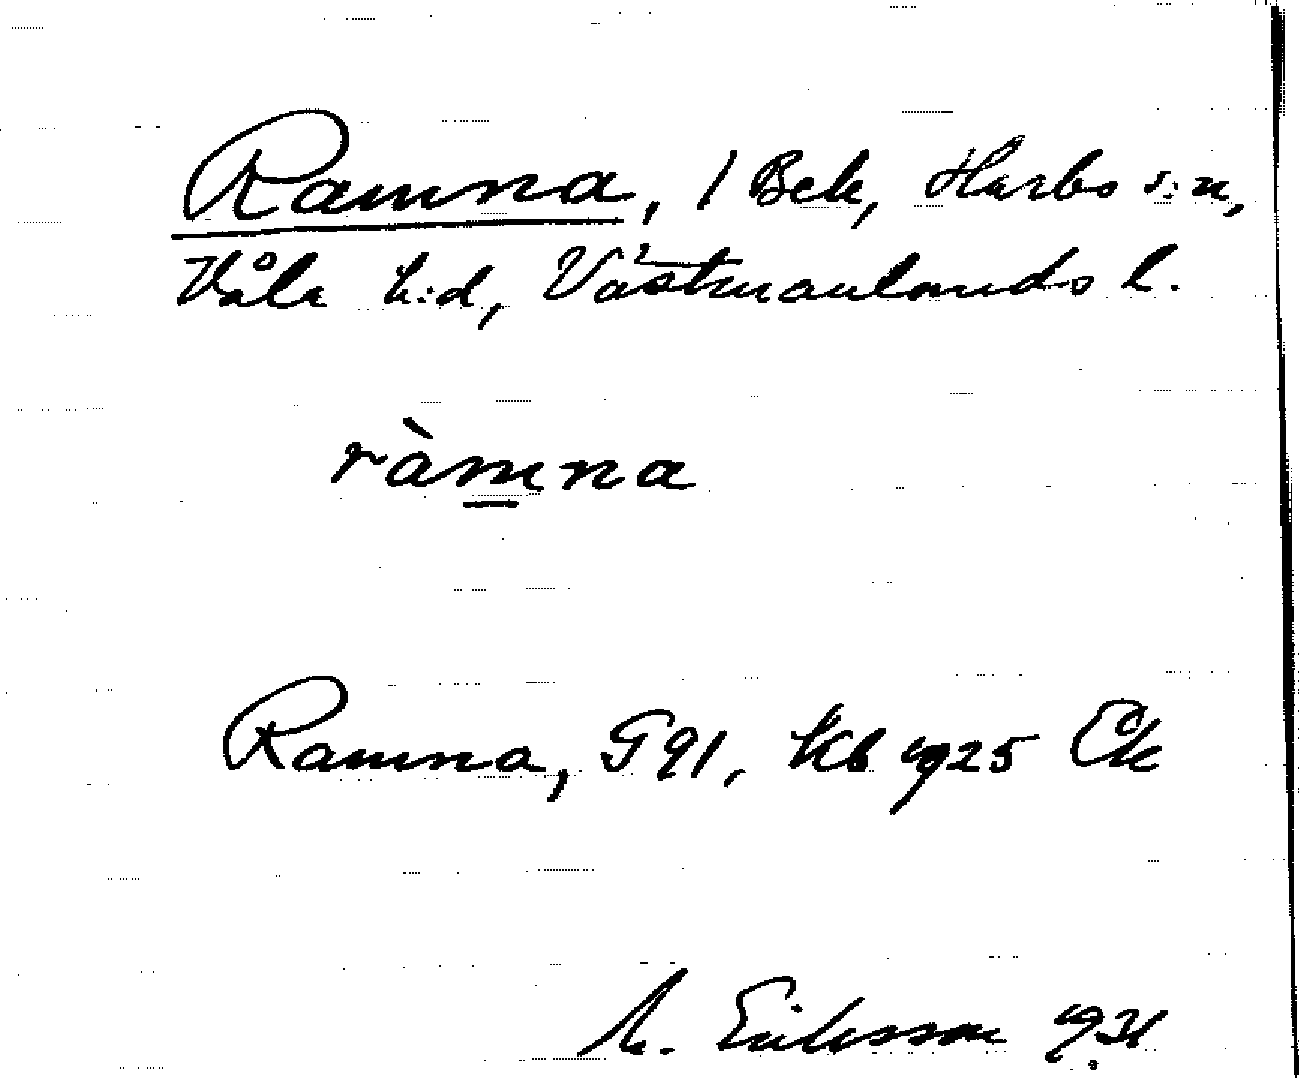 Ramna, 1 Bek, Harbo s:n,
Våla h:d, Västmanlands l.
ràmna
Ramna, G 91, Kb 1925 Ek
M. Eriksson 1931